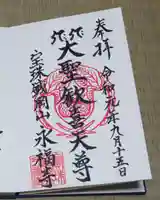 奉拝
令和元年九月十五日
大聖歓喜天尊
宝珠山
永福寺